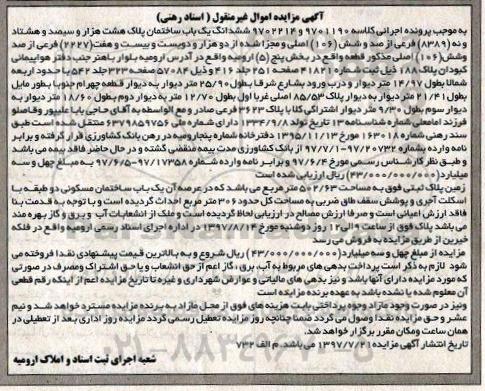 آگهی مزایده اموال غیرمنقول ( اسناد رهنی)
به موجب پرونده اجرائی کلاسه ۹۷۰۱۱۹۰ و ۹۷۰۲۲۱۴ ششدانگ یک باب ساختمان پلاک هشت هزار و سیصد و هشتاد
و نه (۸۳۸۹) فرعی از صد و شش (۱۰۶) اصلی و مجزا شده از دو هزار و دویست و بیست و هفت(۲۲۲۷) فرعی از صد
وشش(۱۰۶) اصلی مذکور قطعه واقع در بخش پنج (۵) ارومیه واقع در آدرس ارومیه بلوار باهنر جنب دفتر هواپیمائی
کبودان پلاک ۱۸۸ ذیل ثبت شماره ۴۱۸۲۱ صفحه ۲۵۱ جلد ۴۱۶ و ذیل ۵۷۰۸۴ صفحه ۳۲۳ جلد ۵۴۲ با حدود اربعه
شمالا بطول ۱۴/۹۷ متر دیوار و درب ورود بشارع شرقا بطول ۲۵/۹۰ متر دیوار به دیوار قطعه چهرم جنوبا بطور مایل
بطول ۲۱/۴۱ متر دیوار به دیوار پلاک ۸۵/۵۳ اصلی غربا اول بطول ۱۲/۷۰ متر به دیوار دوم بطول ۱۸/۶۰ دیوار به
دیوار سوم بطول ۹/۳۰ متر دیوار اشتراکی کلا با پلاک ۳۶۲۳ فرعی صادر و مع الواسطه به آقای حاجی بابا علیپور وفاصلو
فرزند امامعلی شماره شناسنامه ۱۳ تاریخ تولد ۱۳۳۴/۹/۸ دارای شماره ملی ۶۳۷۹۸۵۹۷۵۶ منتقل شده است طبق
سند رهنی شماره ۱۶۳۰۱۸ مورخ ۱۳۹۵/۱۱/۱۳ دفترخانه شماره پنج ارومیه در رهن بانک کشاورزی قرار گرفته و برابر
نامه وارده بشماره ۹۷۲۰۷۳۲-۹۷/۷/۱ از بانک کشاورزی مدت بیمه منقضی گشته و در حال حاضر فاقد بیمه می باشد
و طبق نظر کارشناس رسمی مورخ ۹۷/۶/۴ و برابر نامه وارده شماره ۹۷۱۷۳۵۸-۹۷/۶/۵ به مبلغ چهل و سه
میلیارد(۴۳/۰۰۰/۰۰۰/۰۰۰) ریال ارزیابی شده است
زمین پلاک ثبتی فوق به مساحت ۵۰۲/۶۳ متر مربع می باشد که در عرصه آن یک باب ساختمان مسکونی دو طبقه با
اسکلت آجری و پوشش سقف طاق ضربی به مساحت کل حدود ۳۰۶ متر مربع احداث گردیده است و با توجه به قدمت بنا
فاقد ارزش اعیانی است و صرفا ارزش مصالح در ارزیابی لحاظ گردیده است و ملک از انشعابات آب و برق و گاز بهره مند
می باشد پلاک فوق از ساعت ۹ الی ۱۲ روز دوشنبه مورخ ۱۳۹۷/۸/۱۴ در اداره اجرای اسناد رسمی ارومیه واقع در فلکه
خیرین از طریق مزایده به فروش می رسد
مزایده از مبلغ چهل و سه میلیارد(۴۳/۰۰۰/۰۰۰/۰۰۰) ریال شروع و به بالاترین قیمت پیشنهادی نقدا فروخته می
شود لازم به ذکر است پرداخت بدهی های مربوط به آب، برق ، گاز اعم از حق انشعاب و یا حق اشتراک ومصرف در صورتی
که مورد مزایده دارای آنها باشد و نیز بدهی های مالیاتی و عوارض شهرداری و غیره تا تاریخ مزایده اعم از اینکه رقم قطعی
آن معلوم شده یا نشده باشد به عهده برنده مزایده است
ونیز در صورت وجود مازاد وجوه پرداختی بابت هزینه های فوق از محل مازاد به برنده مزایده مسترد خواهد شد و نیم
عشر و حق مزایده نقدا وصول می گردد ضمنا چنانچه روز مزایده تعطیل رسمی گردد مزایده روز اداری بعد از تعطیلی در
همان ساعت ومکان مقرر برگزار خواهد شد.
تاریخ انتشار آگهی مزایده ۱۳۹۷/۷/۲۱ می باشد. م الف ۷۳۲
شعبه اجرای ثبت اسناد و املاک ارومیه